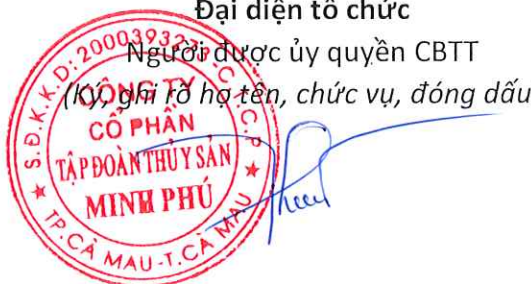 Đại diện tổ chức
Người được ủy quyền CBTT
(Ký, ghi rõ họ tên, chức vụ, đóng dấu
S.Đ.K.K.D: 2000393273-C.T.C.P
CÔNG TY
CỔ PHẦN
TẬP ĐOÀN THỦY SẢN
MINH PHÚ
TP.CÀ MAU-T.CÀ MAU